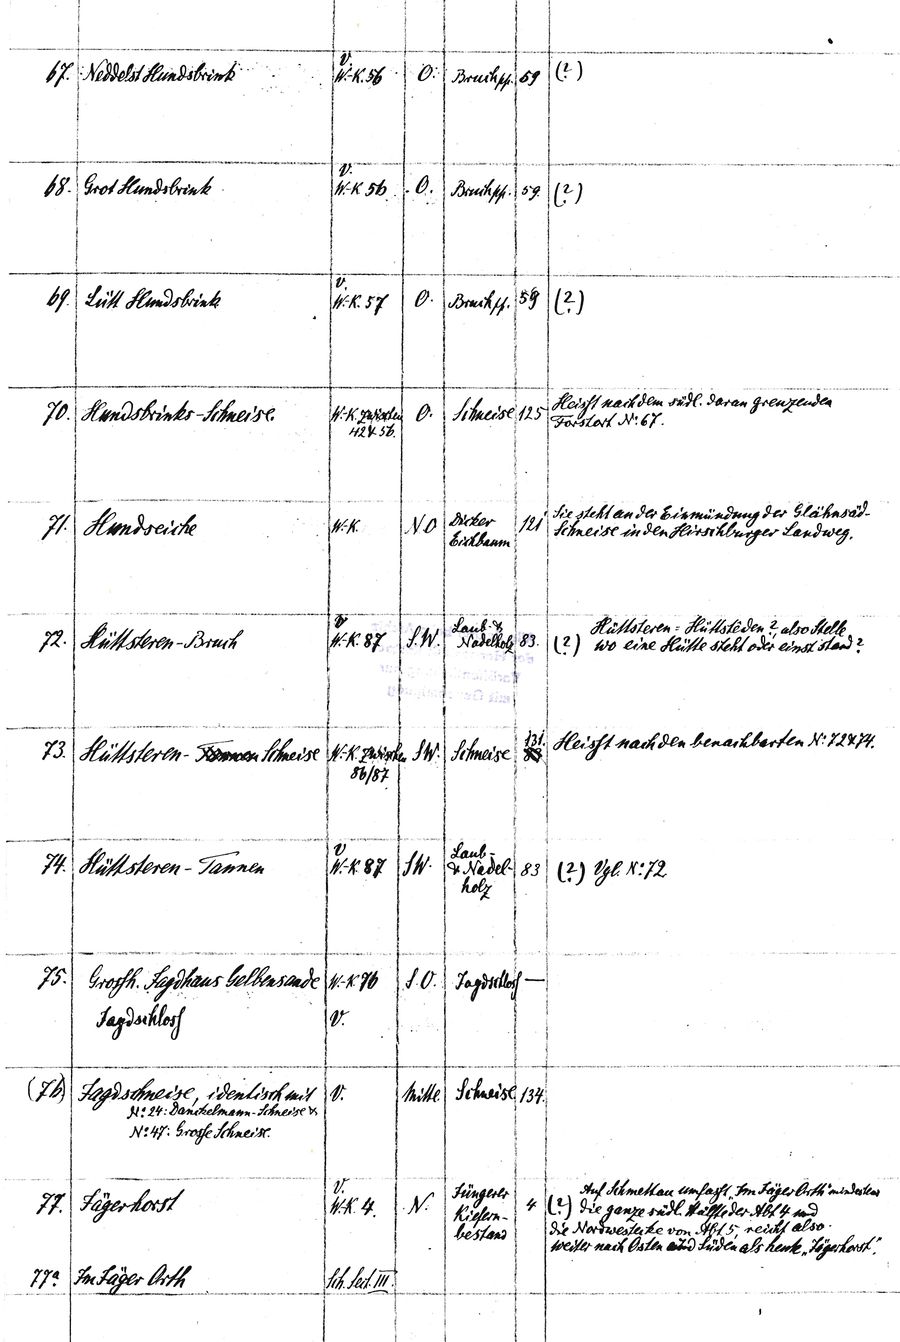 67. Neddelst Hundsbrink V. W.-K. 56 O. Bruch pp. 59 (?)
68. Grot Hundsbrink V. W.-K. 56. O. Bruch pp. 59. (?)
69. Lütt Hundsbrink V. W.-K. 57 O. Bruch pp. 59 (?)
70. Hundsbrinks-Schneise. W.-K. zwischen 42 & 56. O. Schneise 125 Heisst nach dem südl. daran grenzenden
Forstort No: 67.
71. Hundseiche W.-K. NO Dicker Eichbaum 121 Sie steht an der Einmündung der
Schneise in den Hirschburger Landweg.
72. Hüttsteren-Bruch V W.-K. 87 S.W. Laub- & Nadelholz 83. (?) Hüttsteren = Hüttstěden?, also Stelle
wo eine Hütte steht oder einst stand?
73. Hüttsteren- Tannen Schneise W.-K. zwischen 86/87 SW. Schneise 131. 83 Heisst nach den benachbarten No: 72 & 74.
74. Hüttsteren-Tannen V W.-K. 87 SW. Laub- & Nadel-
holz 83 (?) Vgl. No: 72.
75. Grossh. Jagdhaus Gelbensande W.-K. 76 S.O. Jagdschloss —
Jagdschloss V.
(76) Jagdschneise, identisch mit V. Mitte Schneise 134.
No: 24: Danckelmann-Schneise &
No: 47: Grosse Schneise.
77. Jägerhorst V. W.-K. 4. N. Jüngerer
Kiefern-
bestand 4 (?) Auf Schmettau umfasst „Im Jäger Orth" mindestens
die ganze südl. Hälfte der Abt 4 und
die Nordwestecke von Abt 5, reicht also
weiter nach Osten und Süden als heute „Jägerhorst".
77a Im Jäger Orth Sch. Sect. III.